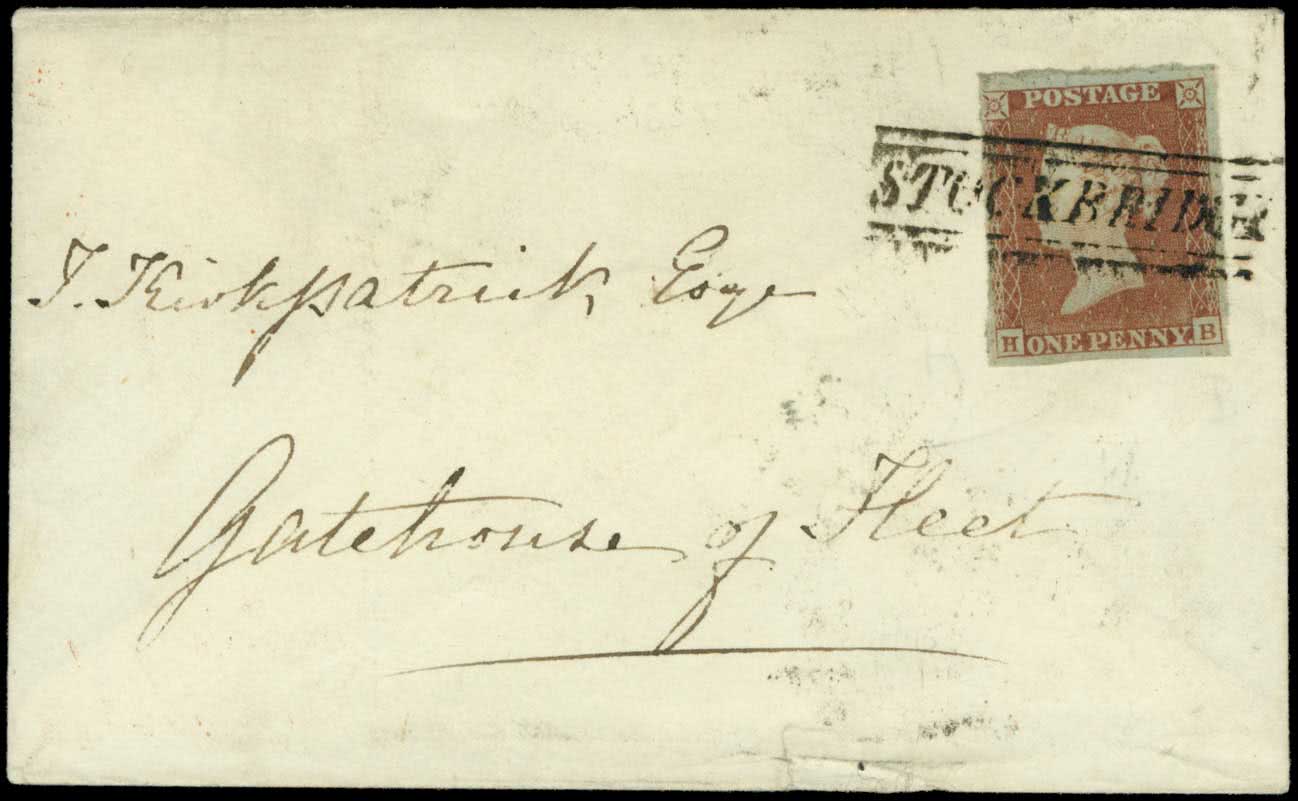 POSTAGE
STOCKBRIDGE
H ONE PENNY. B
J. Kirkpatrick Esqe
Gatehouse of Fleet